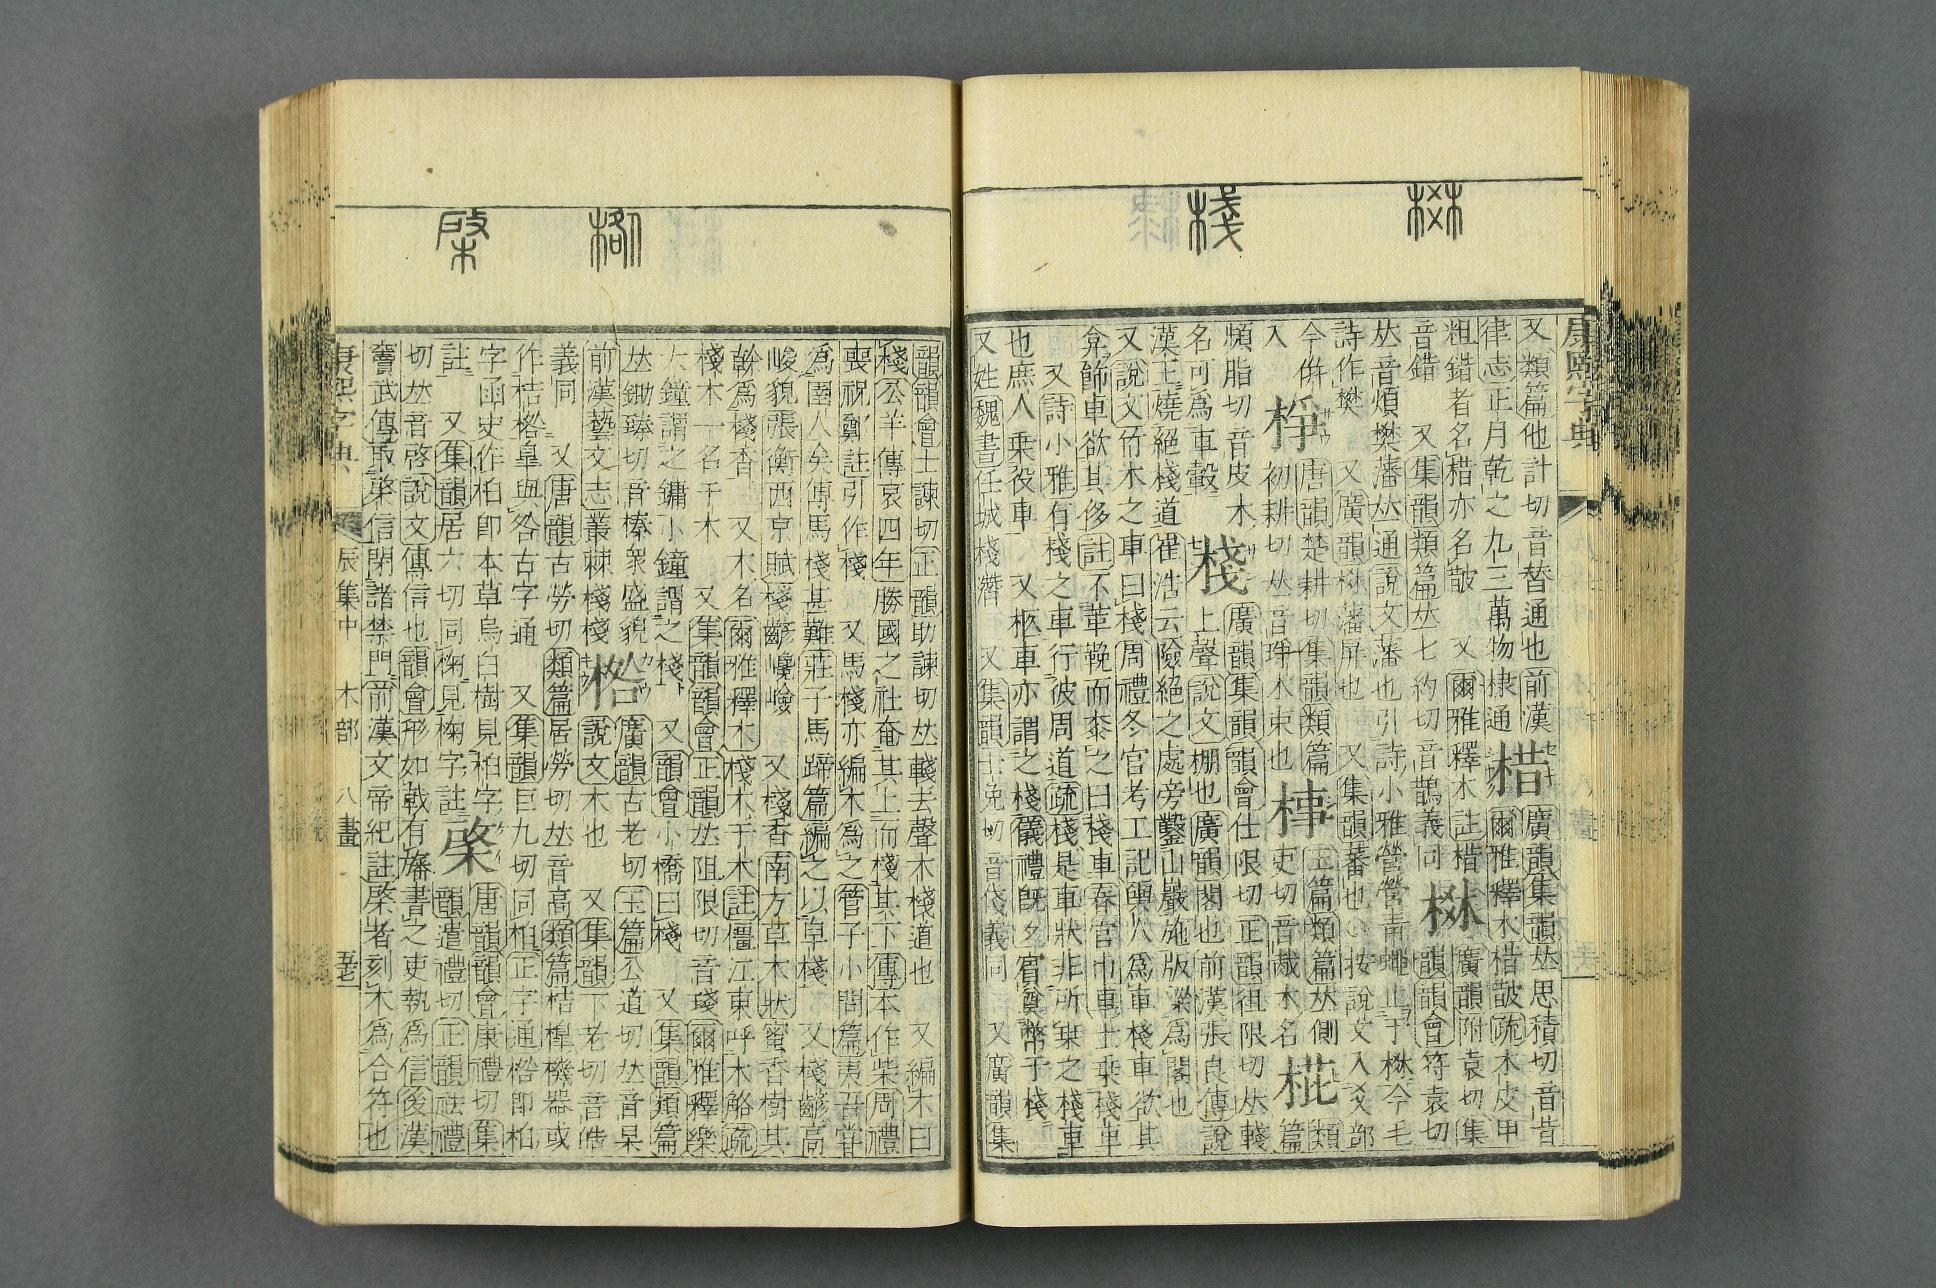 棥
棧
棨
康熙字典
又類篇他計切音替通也前漢
律志正月乾之九三萬物棣通
棤
廣韻集韻𠀤思積切音昔
爾雅釋木棤皵疏木皮甲
粗錯者名棤亦名皵 又爾雅釋木註棤
音錯 又集韻類篇𠀤七約切音鵲義同
棥
廣韻附袁切集
韻韻會符袁切
𠀤音煩樊藩𠀤通說文藩也引詩小雅營營靑蠅止于棥今毛
詩作樊 又廣韻棥藩屛也 又集韻蕃也○按說文入爻部
今倂
入
棦
唐韻楚耕切集韻類篇
初耕切𠀤音琤木束也
玉篇類篇𠀤側
吏切音胾木名
類
篇
頻脂切音皮木
名可爲車轂
棧
廣韻集韻韻會仕限切正韻徂限切𠀤輚
上聲說文棚也廣韻閣也前漢張良傳說
漢王燒絕棧道崔浩云險絕之處旁鑿山巖施版梁爲閣也
又說文竹木之車曰棧周禮冬官考工記輿人爲車棧車欲其
弇飾車欲其侈註不革鞔而桼之曰棧車春官巾車士乘棧車
又詩小雅有棧之車行彼周道疏棧是車狀非所乘之棧車
也庶人乘役車 又柩車亦謂之棧儀禮旣夕賓奠幣于棧
又姓魏書任城棧潛 又集韻士免切音俴義同 又廣韻集
韻韻會士諫切正韻助諫切𠀤輚去聲木棧道也 又編木曰
棧公羊傳哀四年勝國之社奄其上而棧其下傳本作柴周禮
喪祝鄭註引作棧 又馬棧亦編木爲之管子小問篇夷吾嘗
爲圉人矣傅馬棧甚難莊子馬蹄篇編之以皁棧 又棧齴高
峻貌張衡西京賦棧齴巉嶮 又棧香南方草木狀蜜香樹其
幹爲棧香 又木名爾雅釋木棧木干木註僵江東呼木觡疏
棧木一名干木 又集韻韻會正韻𠀤阻限切音琖爾雅釋樂
大鐘謂之鏞小鐘謂之棧 又韻會小橋曰棧 又集韻類篇
𠀤鋤臻切音榛衆盛貌
前漢藝文志叢棘棧棧
廣韻古老切玉篇公道切𠀤音杲
說文木也 又集韻下老切音皓
義同 又唐韻古勞切類篇居勞切𠀤音高類篇桔橰機器或
作桔 皐與咎古字通 又集韻巨九切同桕正字通 卽桕
字函史作桕卽本草烏臼樹見桕字
註 又集韻居六切同椈見椈字註
棨
唐韻韻會康禮切集
韻遣禮切正韻祛禮
切𠀤音啓說文傳信也韻會形如戟有旛書之吏執爲信後漢
竇武傳取棨信閉諸禁門前漢文帝紀註棨者刻木爲合符也
康熙字典 辰集中 木部 八畫